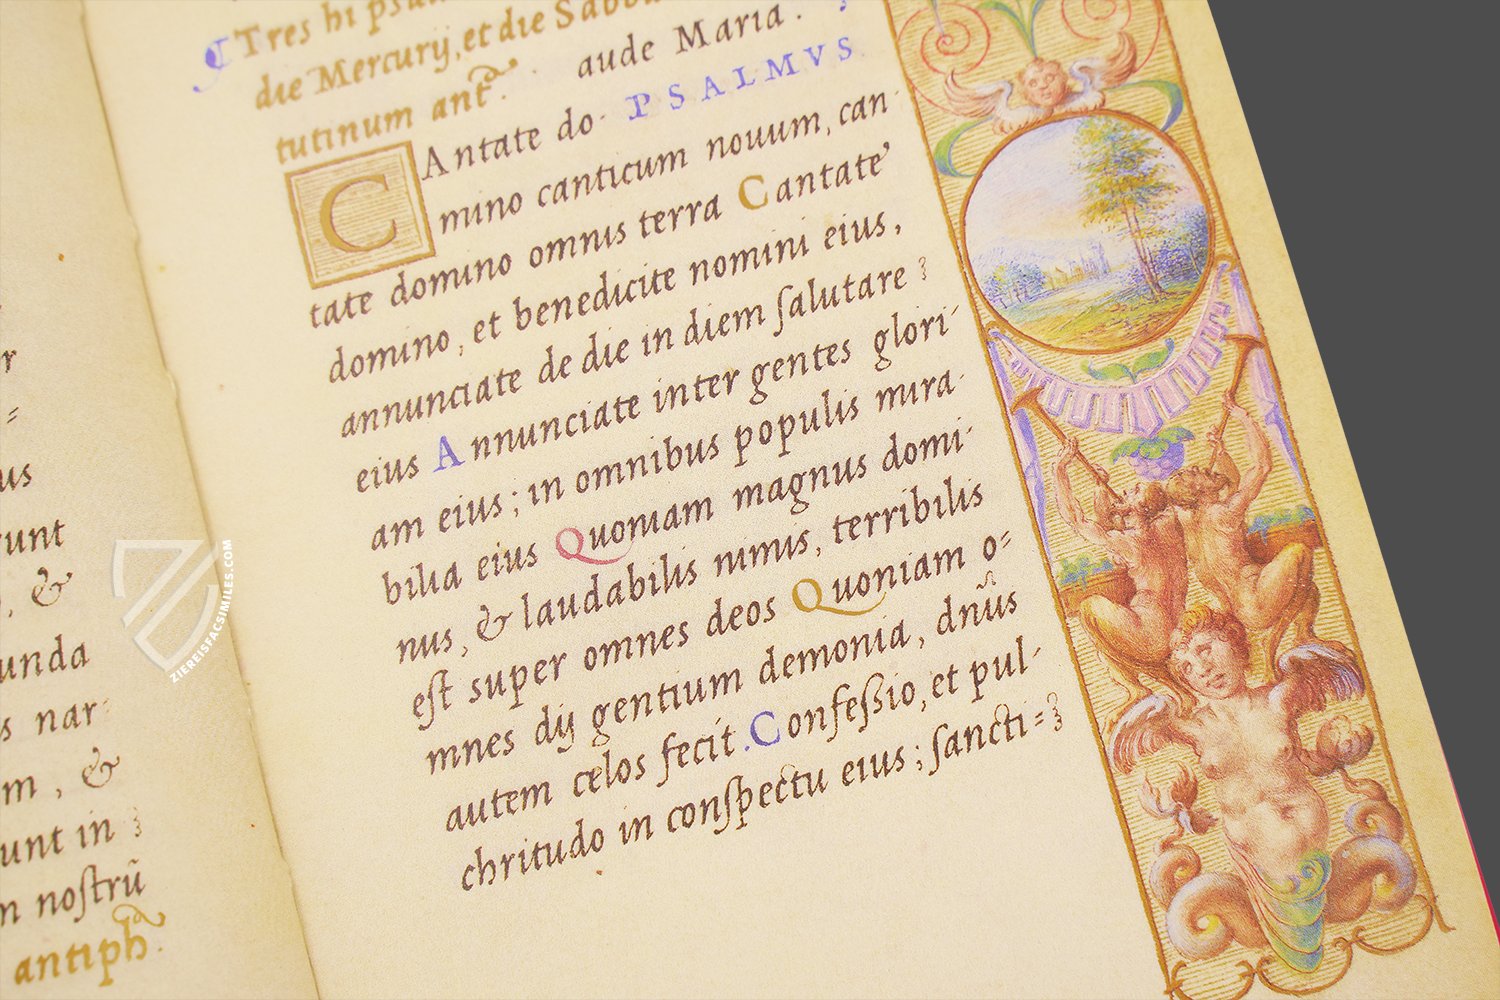 r
=
us
runt
, &
unda
s nar
m , &
unt in
m nostrũ
antiphᵃ.
Tres hi psal
die Mercurij, et die Sabba
tutinum antᵃ. aude Maria .
PSALMVS.
CAntate do-
mino canticum nouum, can
tate domino omnis terra Cantate
domino, et benedicite nomini eius,
annunciate de die in diem ſalutare
eius Annunciate inter gentes glori-
am eius; in omnibus populis mira-
bilia eius Quoniam magnus domi-
nus, & laudabilis nimis, terribilis
eſt super omnes deos Quoniam o=
mnes dij gentium demonia, dnũs
autem celos fecit. Confeſsio, et pul-
chritudo in conſpectu eius; ſancti=
ZIEREISFACSIMILES.COM